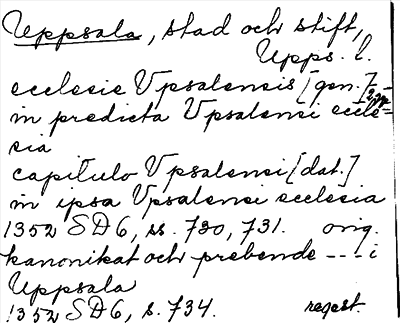 Uppsala, stad och stift,
Upps. l.
ecclesie Vpsalensis [gen.] 2 ggr
in predicta Vpsalensi eccle=
sia
capitulo Vpsalensi [dat.]
in ipsa Vpsalensi ecclesia
1352 SD6, ss. 730, 731. orig.
kanonikat och prebende ---- i
Uppsala
1352 SD6, s. 734. regest.